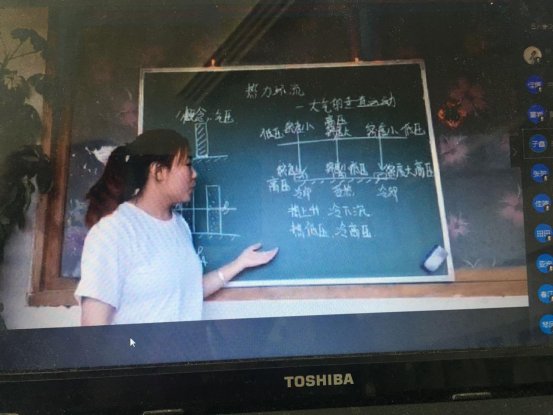 热力环流
—大气的垂直运动
概念:气压
低压 密度小 高压 密度大 密度小 低压
高压 密度大 密度小 低压 密度大 高压
冷却 受热 冷却
热上升 冷下沉
热低压 冷高压
TOSHIBA